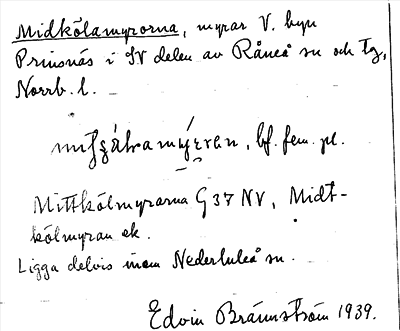 Midkölamyrorna, myrar V. byn
Prinsnäs i SV delen av Råneå sn och tg,
Norrb. l.
bf. fem. pl.
Mittkölmyrarna G 37 NV, Midt-
kölmyran ek.
Ligga delvis inom Nederluleå sn.
Edvin Brännström 1939.